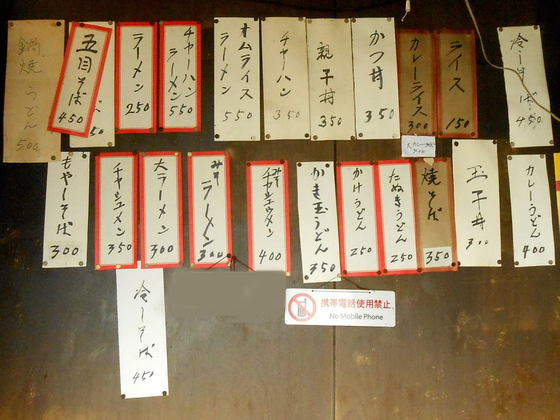 鍋焼うどん 500
五目そば 450
50
ラーメン 250
チャーハン ラーメン 550
オムライス ラーメン 550
チャーハン 350
親子丼 350
かつ丼 350
カレーライス 300
ライス 150
冷しそば 450
もやしそば 300
チャシュメン 350
大ラーメン 300
みそ ラーメン 300
みそ チャシュウメン 400
かき玉うどん 350
かけうどん 250
たぬきうどん 250
焼そば 350
玉子丼 300
カレーうどん 400
冷しそば 450
携帯電話使用禁止
No Mobile Phone